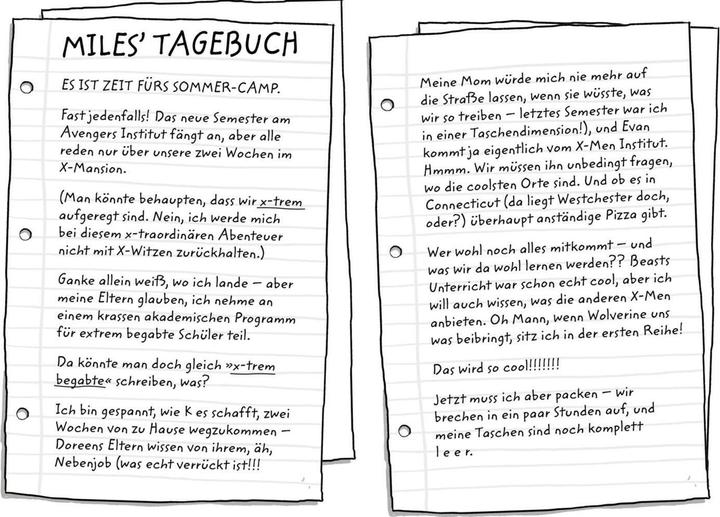 MILES' TAGEBUCH
ES IST ZEIT FÜRS SOMMER-CAMP.
Fast jedenfalls! Das neue Semester am
Avengers Institut fängt an, aber alle
reden nur über unsere zwei Wochen im
X-Mansion.
(Man könnte behaupten, dass wir x-trem
aufgeregt sind. Nein, ich werde mich
bei diesem x-traordinären Abenteuer
nicht mit X-Witzen zurückhalten.)
Ganke allein weiß, wo ich lande – aber
meine Eltern glauben, ich nehme an
einem krassen akademischen Programm
für extrem begabte Schüler teil.
Da könnte man doch gleich »x-trem
begabte« schreiben, was?
Ich bin gespannt, wie K es schafft, zwei
Wochen von zu Hause wegzukommen –
Doreens Eltern wissen von ihrem, äh,
Nebenjob (was echt verrückt ist!!!
Meine Mom würde mich nie mehr auf
die Straße lassen, wenn sie wüsste, was
wir so treiben – letztes Semester war ich
in einer Taschendimension!), und Evan
kommt ja eigentlich vom X-Men Institut.
Hmmm. Wir müssen ihn unbedingt fragen,
wo die coolsten Orte sind. Und ob es in
Connecticut (da liegt Westchester doch,
oder?) überhaupt anständige Pizza gibt.
Wer wohl noch alles mitkommt – und
was wir da wohl lernen werden?? Beasts
Unterricht war schon echt cool, aber ich
will auch wissen, was die anderen X-Men
anbieten. Oh Mann, wenn Wolverine uns
was beibringt, sitz ich in der ersten Reihe!
Das wird so cool!!!!!!!
Jetzt muss ich aber packen – wir
brechen in ein paar Stunden auf, und
meine Taschen sind noch komplett
l e e r.